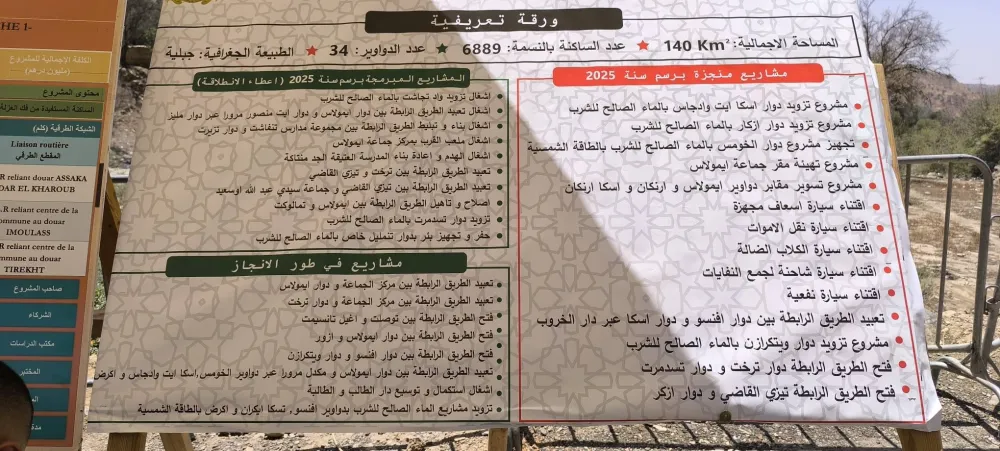 ورقة تعريفية
المساحة الاجمالية: 140 Km² ★ عدد الساكنة بالنسمة: 6889 ★ عدد الدواوير: 34 ★ الطبيعة الجغرافية: جبلية
مشاريع منجزة برسم سنة 2025
مشروع تزويد دوار اسكا ايت وادجاس بالماء الصالح للشرب
مشروع تزويد دوار ازكار بالماء الصالح للشرب
تجهيز مشروع دوار الخومس بالماء الصالح للشرب بالطاقة الشمسية
مشروع تهيئة مقر جماعة ايمولاس
مشروع تسوير مقابر دواوير ايمولاس و ارتكان و اسكا ارتكان
اقتناء سيارة اسعاف مجهزة
اقتناء سيارة نقل الاموات
اقتناء سيارة الكلاب الضالة
اقتناء سيارة شاحنة لجمع النفايات
اقتناء سيارة نفعية
تعبيد الطريق الرابطة بين دوار افنسو و دوار اسكا عبر دار الخروب
مشروع تزويد دوار ويتكرازن بالماء الصالح للشرب
فتح الطريق الرابطة دوار ترخت و دوار تسدمرت
فتح الطريق الرابطة تيزي القاضي و دوار ازكر
المشاريع المبرمجة برسم سنة 2025 (اعطاء الانطلاقة)
اشغال تزويد واد تجاشت بالماء الصالح للشرب
اشغال تعبيد الطريق الرابطة بين دوار ايمولاس و دوار ايت منصور مرورا عبر دوار مليز
اشغال بناء و تبليط الطريق الرابطة بين مجموعة مدارس تنفاشت و دوار تزيرت
اشغال ملعب القرب بمركز جماعة ايمولاس
اشغال الهدم و اعادة بناء المدرسة العتيقة الجد منتاكة
تعبيد الطريق الرابطة بين ترخت و تيزي القاضي
تعبيد الطريق الرابطة بين تيزي القاضي و جماعة سيدي عبد الله اوسعيد
اصلاح و تاهيل الطريق الرابطة بين ايمولاس و تمالوكت
تزويد دوار تسدمرت بالماء الصالح للشرب
حفر و تجهيز بئر بدوار تنمليل خاص بالماء الصالح للشرب
مشاريع في طور الانجاز
تعبيد الطريق الرابطة بين مركز الجماعة و دوار ايمولاس
تعبيد الطريق الرابطة بين مركز الجماعة و دوار ترخت
فتح الطريق الرابطة بين توصلت و اغيل تانسيمت
فتح الطريق الرابطة بين دوار ايمولاس و ازور
فتح الطريق الرابطة بين دوار افنسو و دوار ويتكرازن
تعبيد الطريق الرابطة بين دوار ايمولاس و مكدل مرورا عبر دواوير الخومس,اسكا ايت وادجاس و اكرض
اشغال استكمال و توسيع دار الطالب و الطالبة
تزويد مشاريع الماء الصالح للشرب بدواوير افنسو, تسكا ايكران و اكرض بالطاقة الشمسية
HE 1-
الكلفة الإجمالية للمشروع
(مليون درهم)
محتوى المشروع
الساكنة المستفيدة من فك العزلة
الشبكة الطرقية (كلم)
Liaison routière
المقطع الطرقي
R reliant douar ASSAKA
DAR EL KHAROUB
R reliant centre de la
ommune au douar
IMOULASS
R reliant centre de la
ommune au douar
TIREKHT
صاحب المشروع
الشركاء
مكتب الدراسات
المختبر